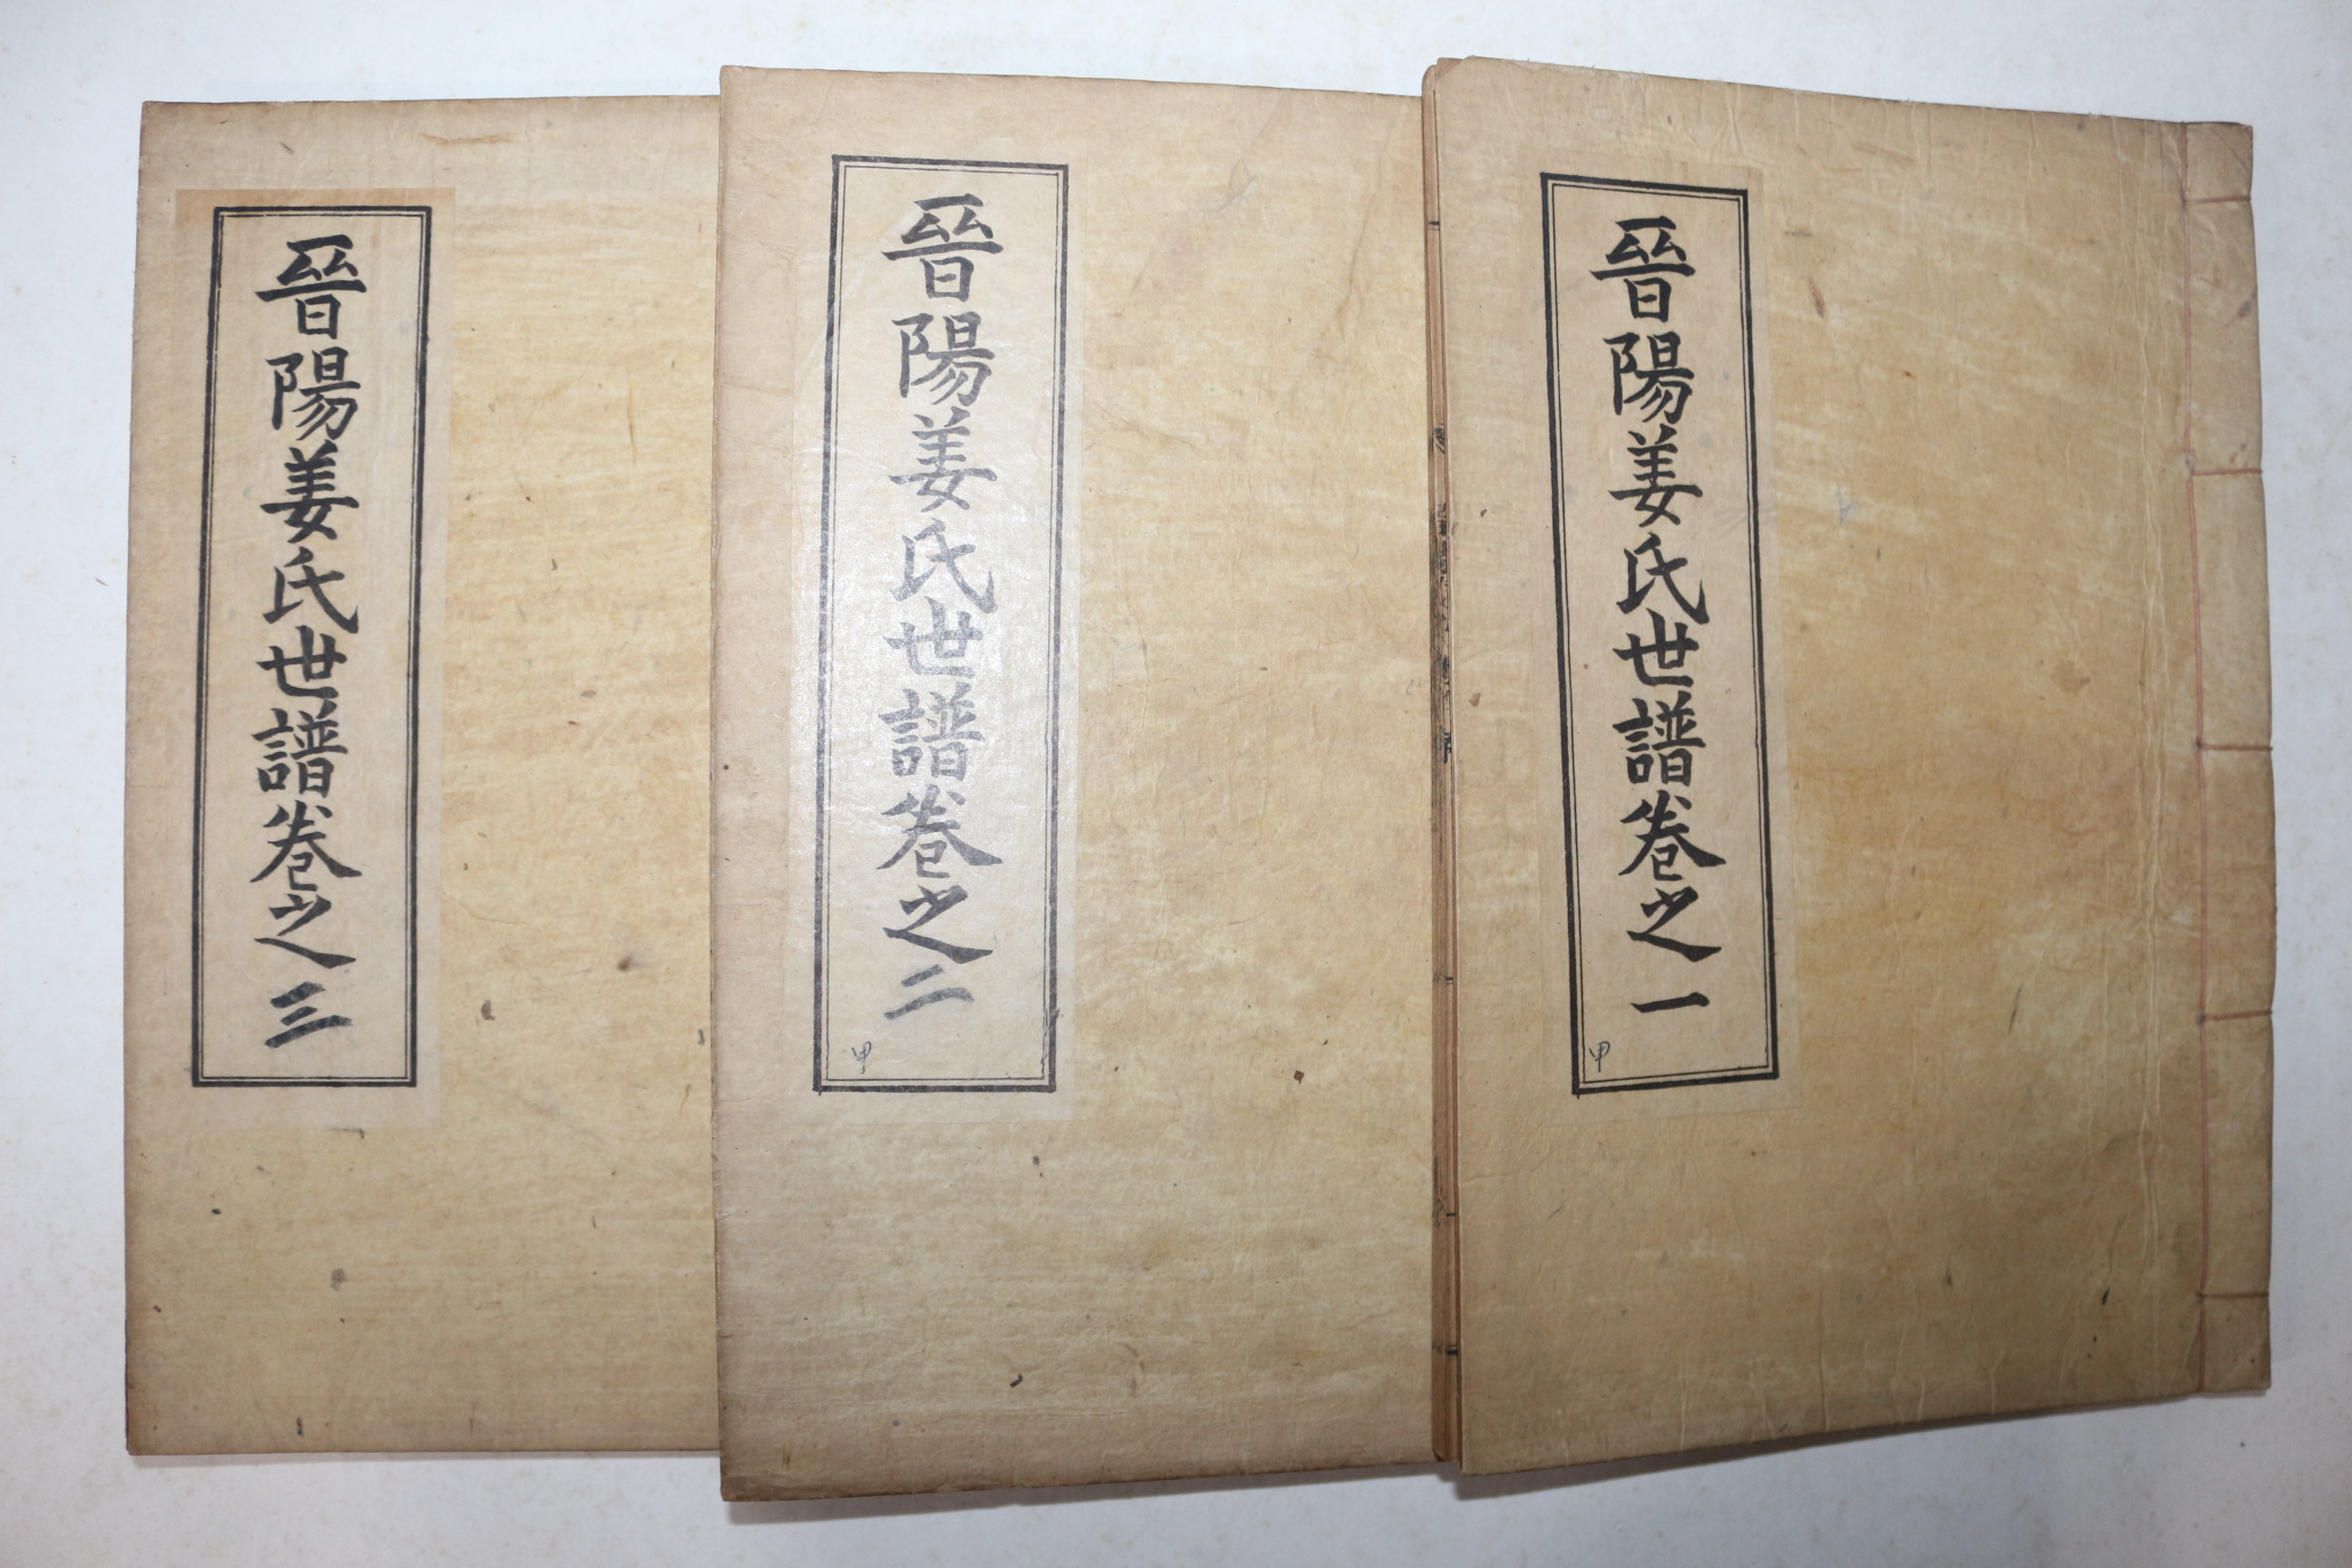 晉陽姜氏世譜卷之一
甲
晉陽姜氏世譜卷之二
甲
晉陽姜氏世譜卷之三